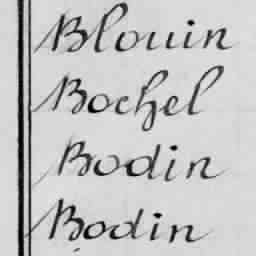 Blouin
Bochel
Bodin
Bodin